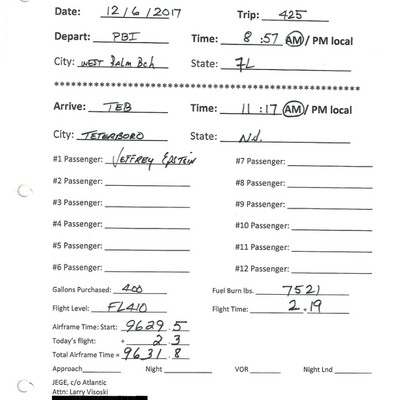 Date: 12/6/2017 Trip: 425
Depart: PBI Time: 8:57 AM / PM local
City: WEST Palm Bch State: FL
**************************************************
Arrive: TEB Time: 11:17 AM / PM local
City: TETERBORO State: N.J.
#1 Passenger: JEFFREY EPSTEIN #7 Passenger:
#2 Passenger: #8 Passenger:
#3 Passenger: #9 Passenger:
#4 Passenger: #10 Passenger:
#5 Passenger: #11 Passenger:
#6 Passenger: #12 Passenger:
Gallons Purchased: 400 Fuel Burn lbs. 7521
Flight Level: FL410 Flight Time: 2.19
Airframe Time: Start: 9629.5
Today's flight: + 2.3
Total Airframe Time = 9631.8
Approach Night VOR Night Lnd
JEGE, c/o Atlantic
Attn: Larry Visoski